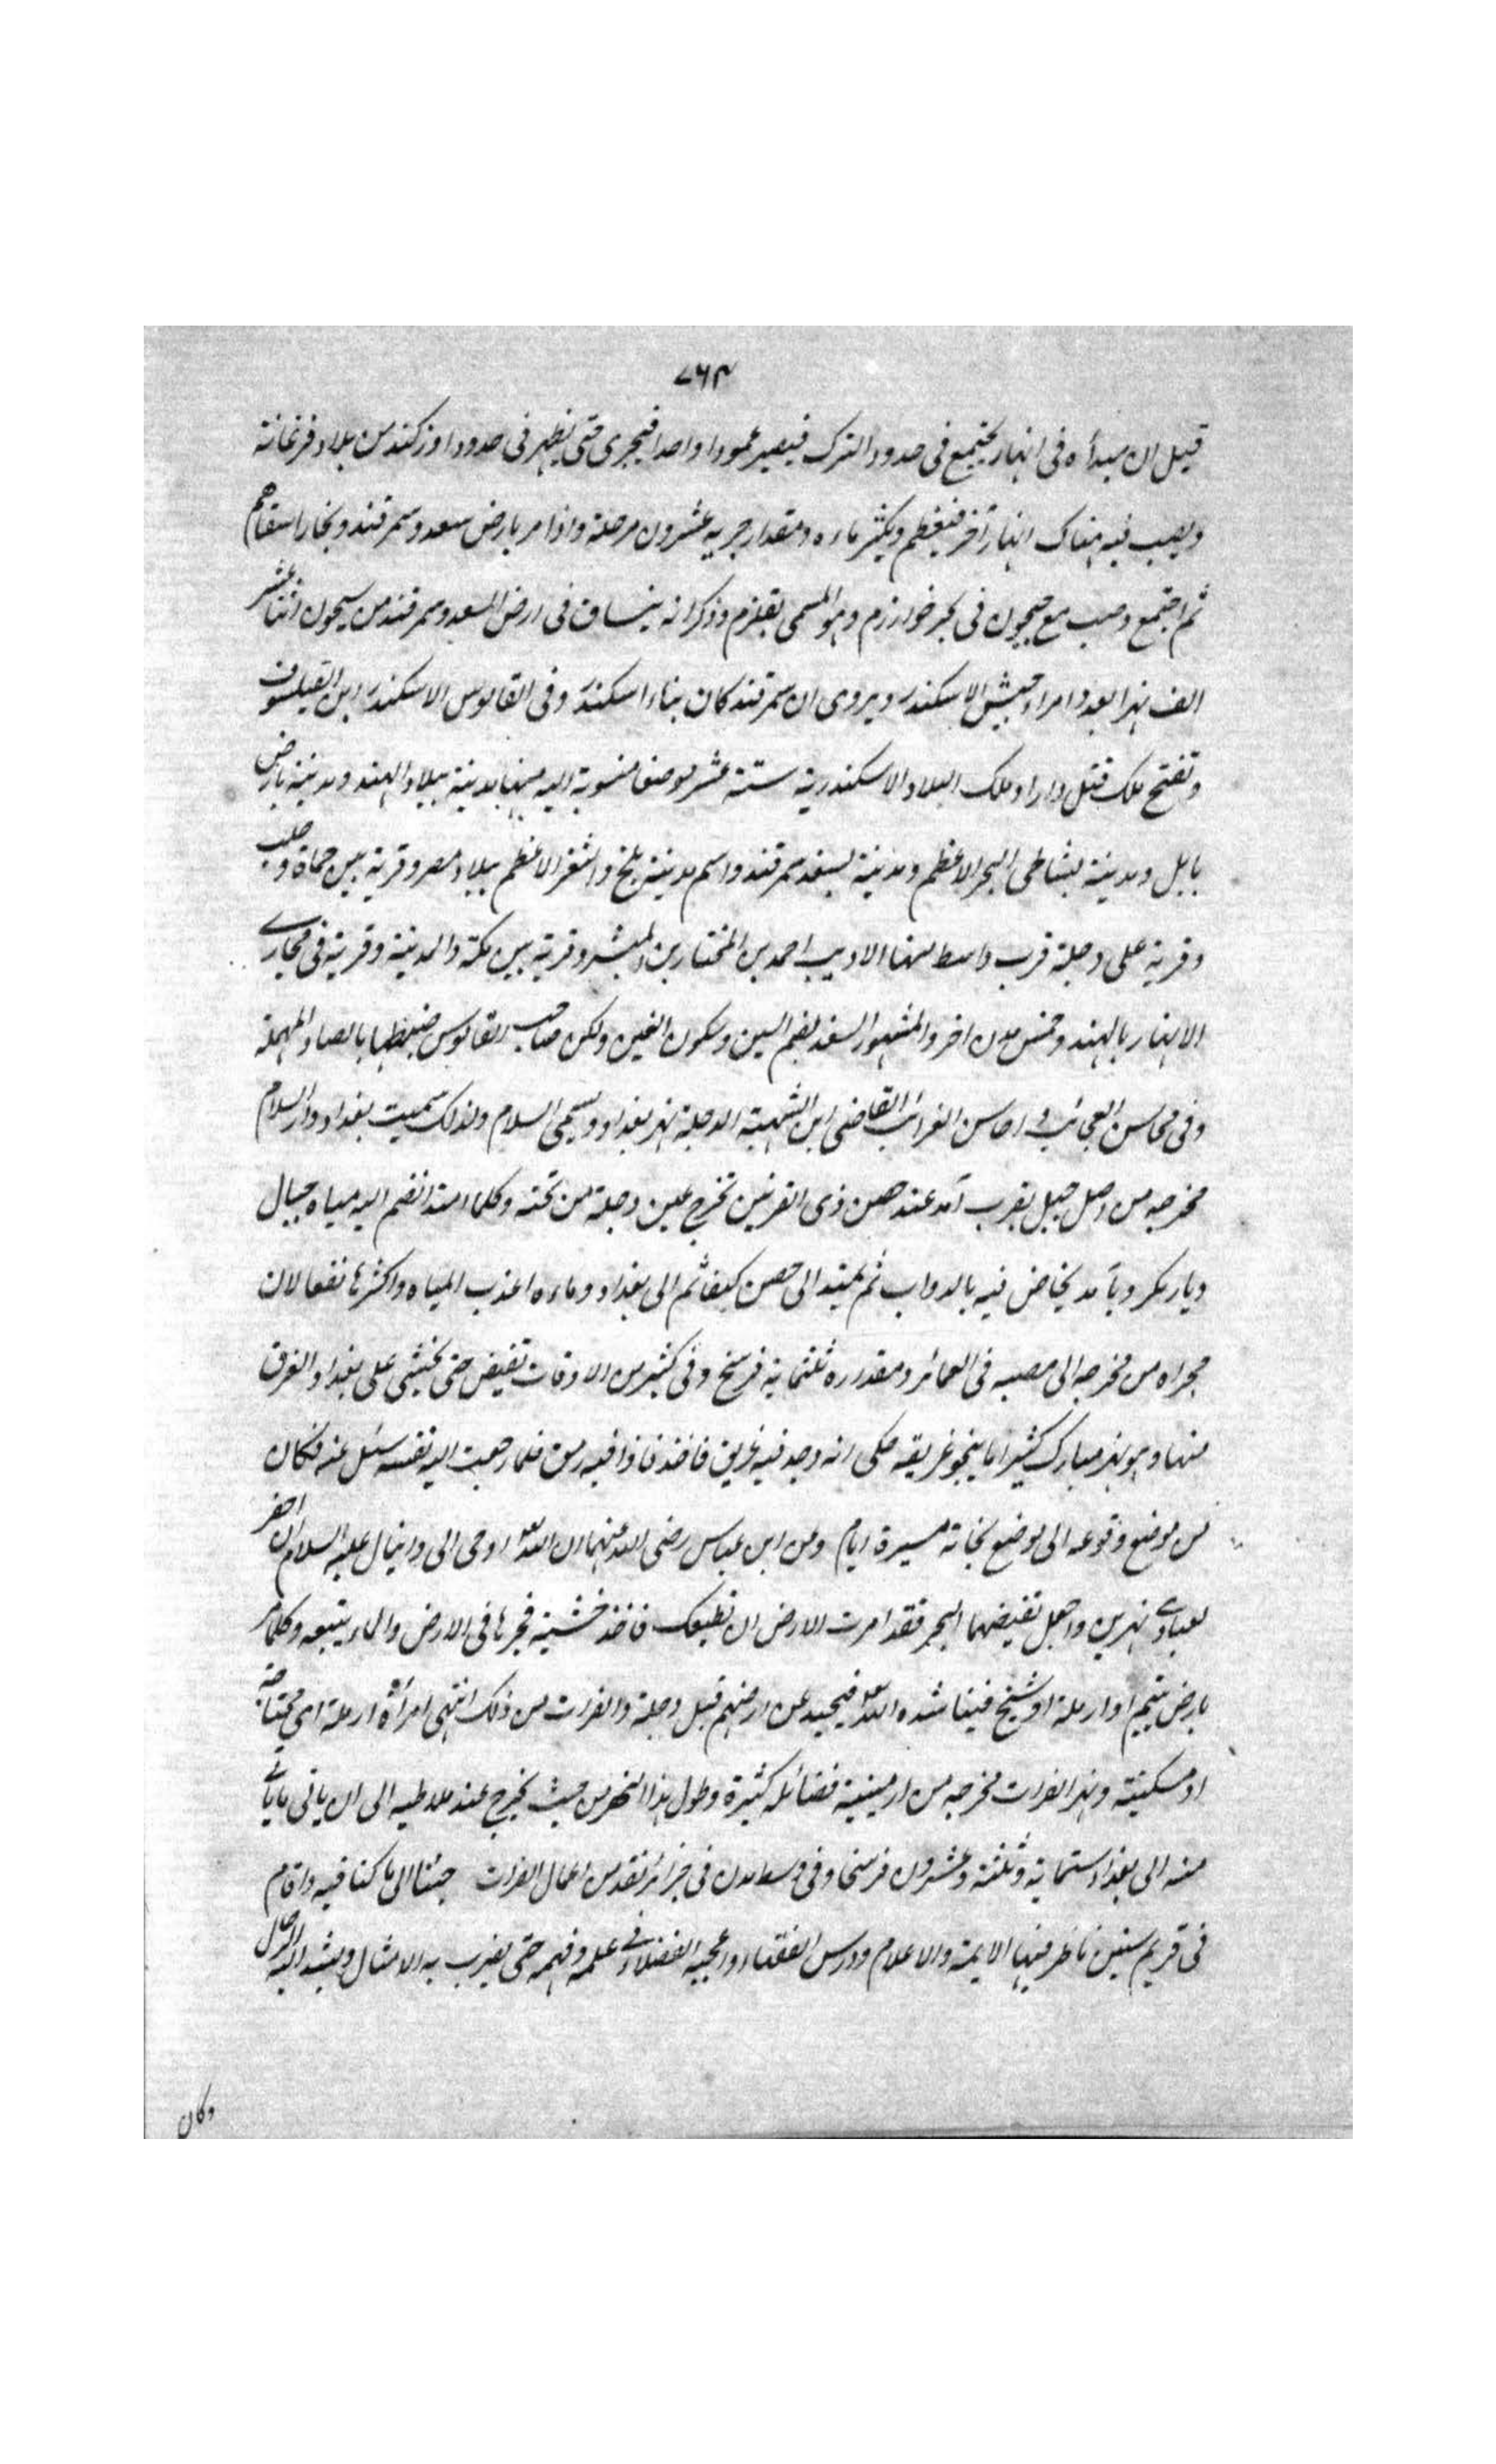 ٧٦٣
قيل ان مبدأه فى انهار يجتمع فى حدود الترك فيصير عمودا واحدا فيجرى حتى يظهر فى حدود اوزكند من بلاد فرغانة
ويصب فيه هناك انهار آخر فيعظم ويكثر ماءه ومقدار جريه عشرون مرحلة واذا مر بارض سعد وسمرقند وبخارا سقاهم
ثم اجتمع وصب مع جيحون فى بحر خوارزم وهو المسمى بقلزم وذكر انه ينساق فى ارض السعد وسمرقند من سيحون اثنا عشر
الف نهرا بعدد امراء جيش الاسكندر ويروى ان سمرقند كان بناء اسكندر وفى القاموس الاسكندر ابن الفيلسوف
وتفتح ملك قتل دارا وملك البلاد والاسكندرية ستة عشر موضعا منسوبة اليه منها مدينة ببلاد الهند ومدينة بارض
بابل ومدينة بشاطى البحر الاعظم ومدينة بسغد سمرقند واسم مدينة بلخ والثغر الاعظم ببلاد مصر وقرية بين حماة وحلب
وقرية على دجلة قرب واسط منها الاديب احمد بن المختار بن المبشر وقرية بين مكة والمدينة وقرية فى مجارى
الانهار بالهند وخمس مدن اخر والمشهور السغد بضم السين وسكون الغين ولكن صاحب القاموس ضبطها بالصاد المهملة
وفى محاسن العجائب و احاسن الغرائب القاضى ابن الشهبة الدجلة نهر بغداد ويسمى السلام ولذلك سميت بغداد دار السلام
مخرجه من اصل جبل بقرب آمد عند حصن ذى القرنين تخرج عين دجلة من تحته وكلما امتد انضم اليه مياه جبال
ديار بكر وبآمد يخاض فيه بالدواب ثم يمتد الى حصن كيفا ثم الى بغداد وماءه اعذب المياه واكثرها نفعا لان
مجراه من مخرجه الى مصبه فى العمائر ومقدره ثلثماية فرسخ وفى كثير من الاوقات تفيض حتى يخشى على بغداد الغرق
منها وهو نهر مبارك كثيرا ما ينجو غريقه حكى انه وجد فيه غريق فاخذ فاذا فيه رمق فلما رجعت اليه نفسه سئل عنه فكان
من موضع وقوعه الى موضع نجاته مسيرة ايام وعن ابن عباس رضى الله عنهما ان الله تعالى اوحى الى دانيال عليه السلام ان احفر
لعبادى نهرين واجعل تفيضهما البحر فقد امرت الارض ان تطيعك فاخذ خشبة فجرها فى الارض والماء يتبعه وكلما مر
بارض يتيم او ارملة او شيخ فيناشده الله تعالى فيحيد عن ارضهم قبل دجلة والفرات من ذلك انتهى امرأة ارملة اى محتاجة
او مسكينة ونهر الفرات مخرجه من ارمينية فضائله كثيرة وطول هذا النهر من حيث يخرج عند ملاطيه الى ان ياتى ما ياتى
منه الى بغداد ستماية وثلثة وعشرون فرسخا وفى وسط مدن فى جزائر تعد من اعمال الفرات جئنا الى ما كنا فيه واقام
فى قريم سنين ناظر فيها الايمة والاعلام ودرس الفقهاء واعجبه الفضلاء فى علمه وفهمه حتى يضرب به الامثال ويشد اليه الرحال
وكان